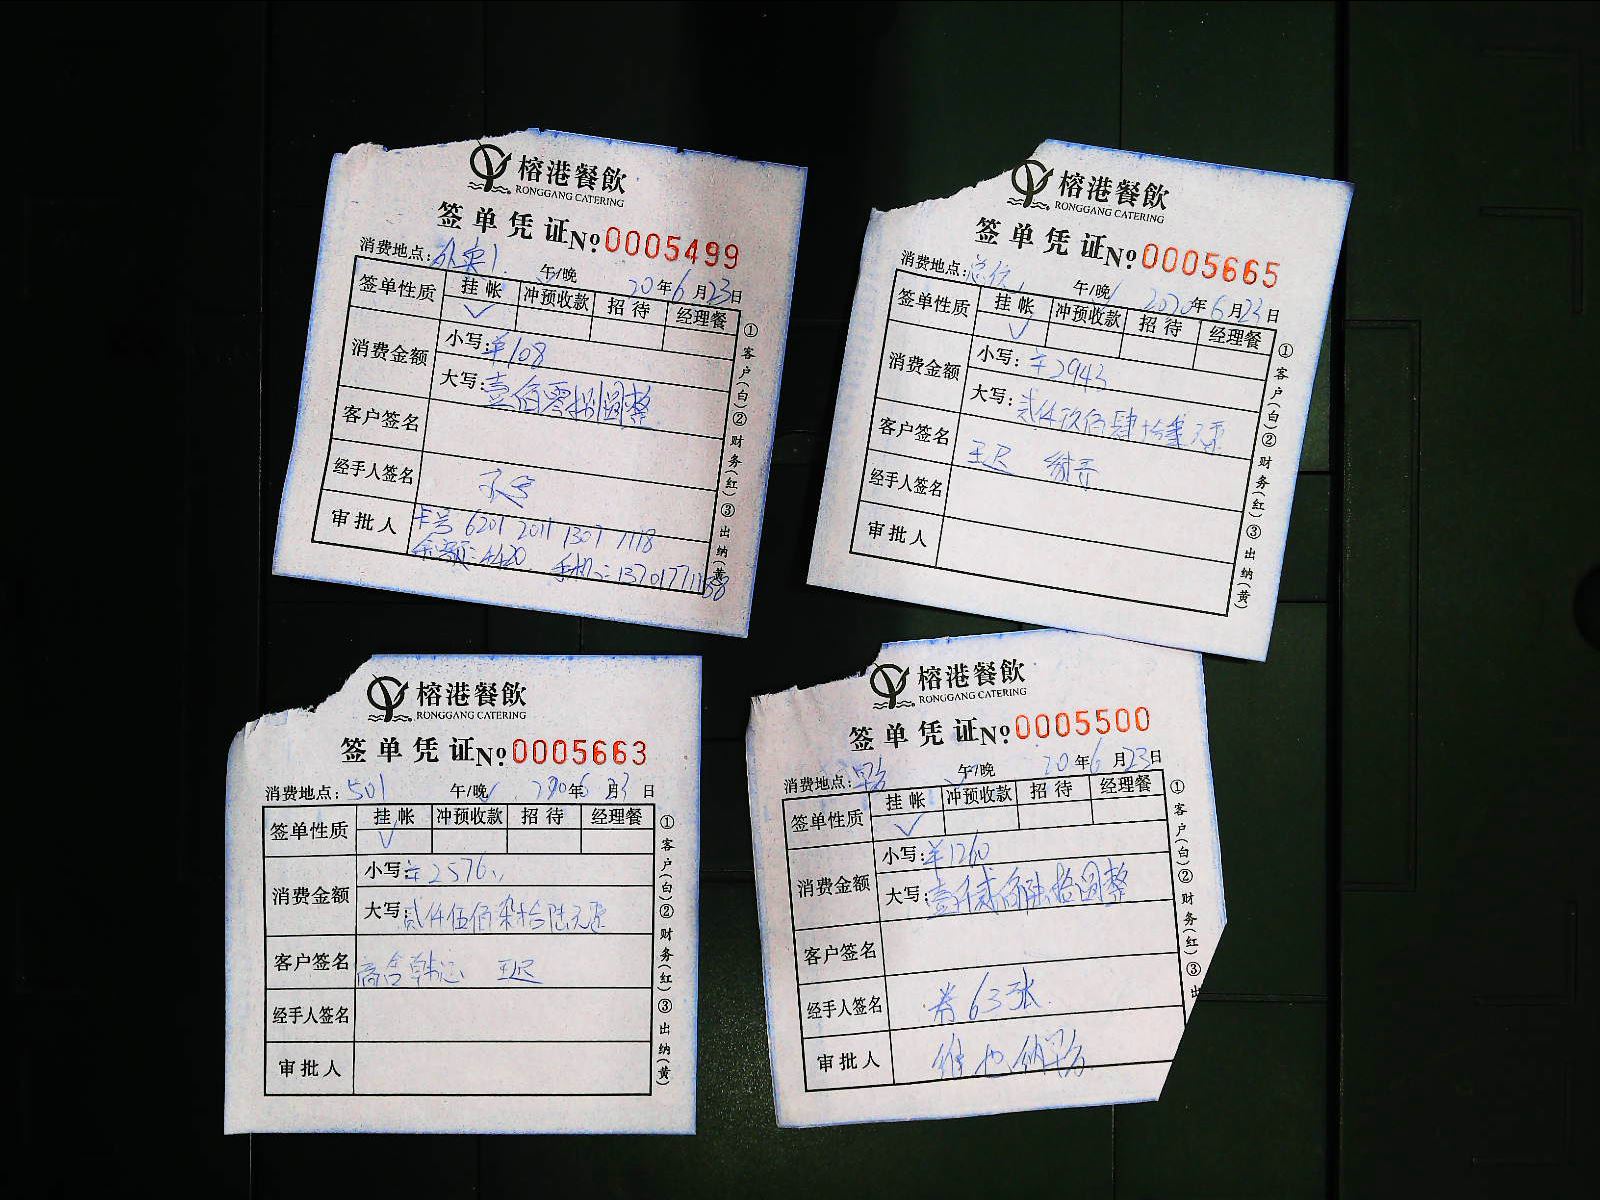 榕港餐飲
RONGGANG CATERING
签单凭证 No 0005499
消费地点: 午/晚 20年6月23日
签单性质 挂帐 冲预收款 招待 经理餐
✓
消费金额 小写: ¥108
大写: 壹佰零捌圆整
客户签名
经手人签名
审批人 卡号 6201 2011 1307 7118
余额: 4420 手机: 13701771138
①客户(白)②财务(红)③出纳(黄)
榕港餐飲
RONGGANG CATERING
签单凭证 No 0005665
消费地点: 午/晚✓ 2020年6月23日
签单性质 挂帐 冲预收款 招待 经理餐
✓
消费金额 小写: ¥2943
大写: 贰仟玖佰肆拾叁元整
客户签名 王迟
经手人签名
审批人
①客户(白)②财务(红)③出纳(黄)
榕港餐飲
RONGGANG CATERING
签单凭证 No 0005663
消费地点: 501 午/晚✓ 年6月 日
签单性质 挂帐 冲预收款 招待 经理餐
✓
消费金额 小写: ¥2576
大写: 贰仟伍佰柒拾陆元整
客户签名 商会韩总 王迟
经手人签名
审批人
①客户(白)②财务(红)③出纳(黄)
榕港餐飲
RONGGANG CATERING
签单凭证 No 0005500
消费地点: 午/晚 20年6月23日
签单性质 挂帐 冲预收款 招待 经理餐
✓
消费金额 小写: ¥1260
大写: 壹仟贰佰陆拾圆整
客户签名
经手人签名 券63张
审批人 维也纳
①客户(白)②财务(红)③出